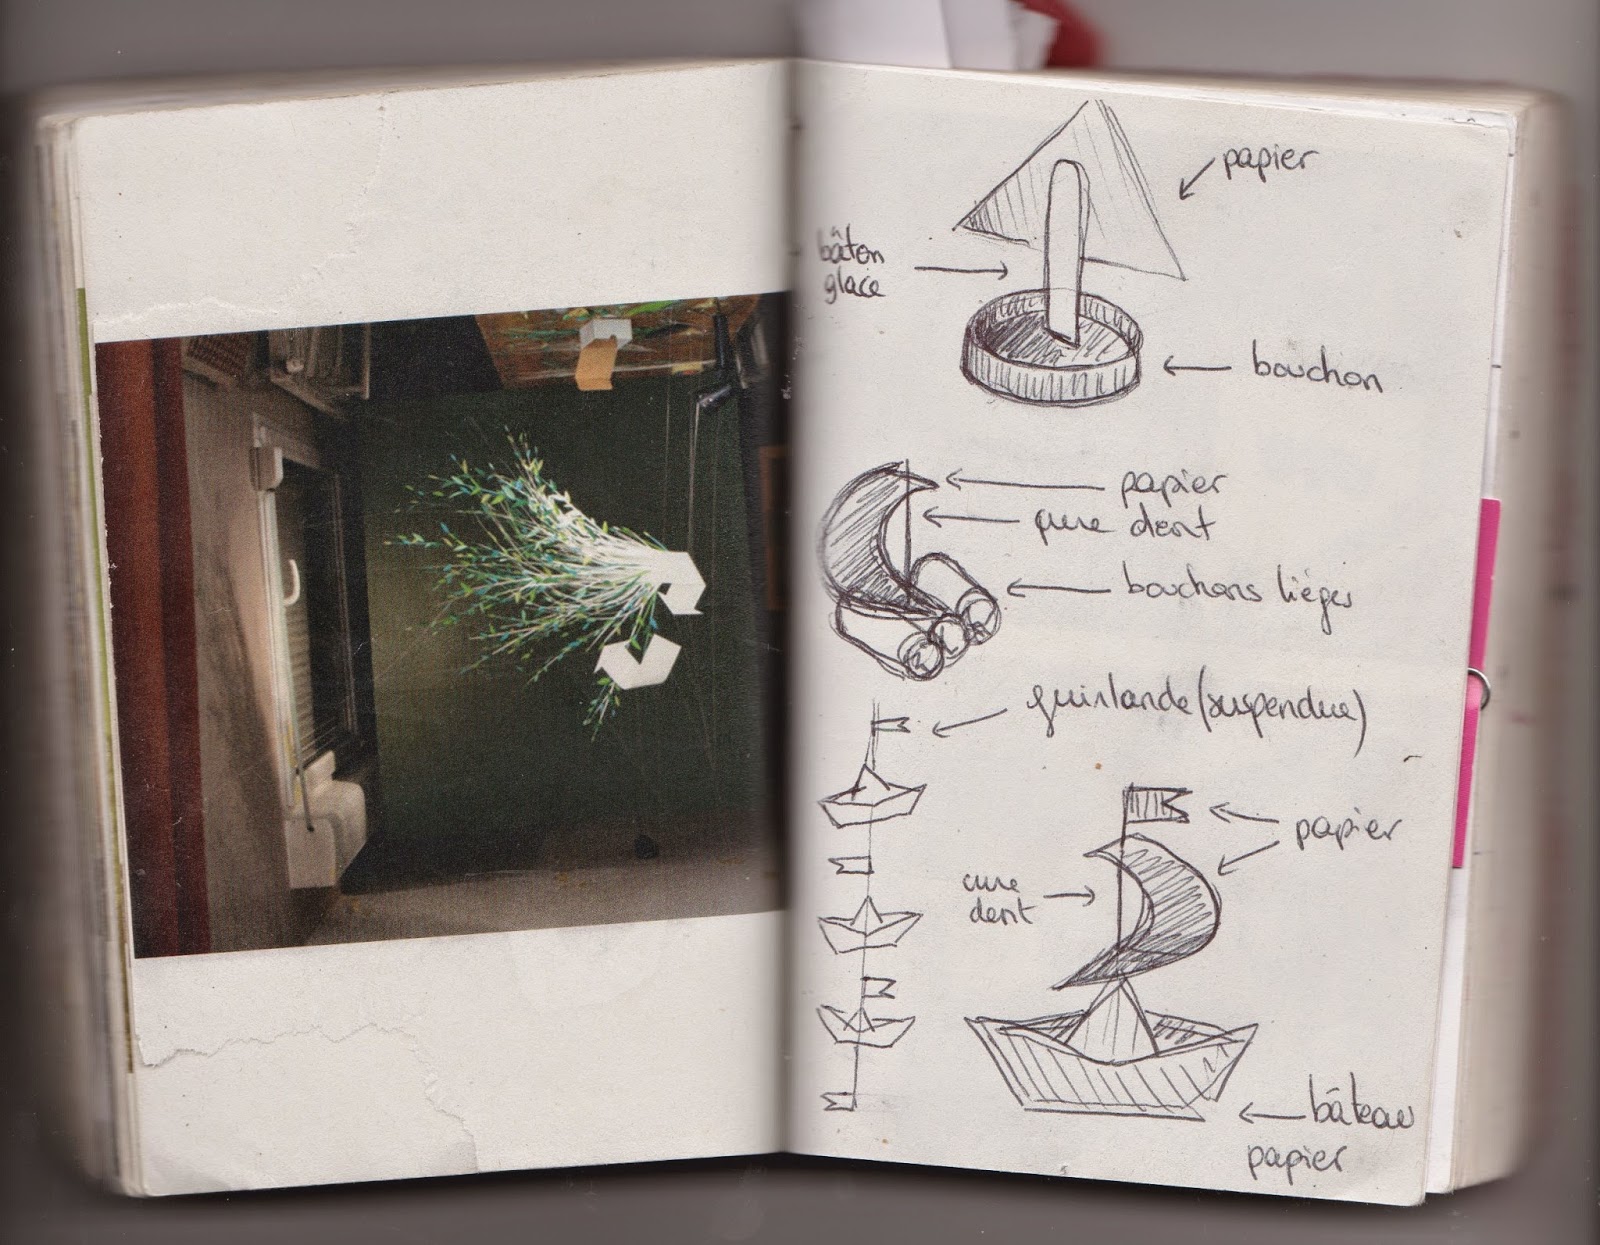 papier
bâton
glace
bouchon
papier
cure dent
bouchons lièges
guirlande (suspendue)
papier
cure
dent
bâteau
papier